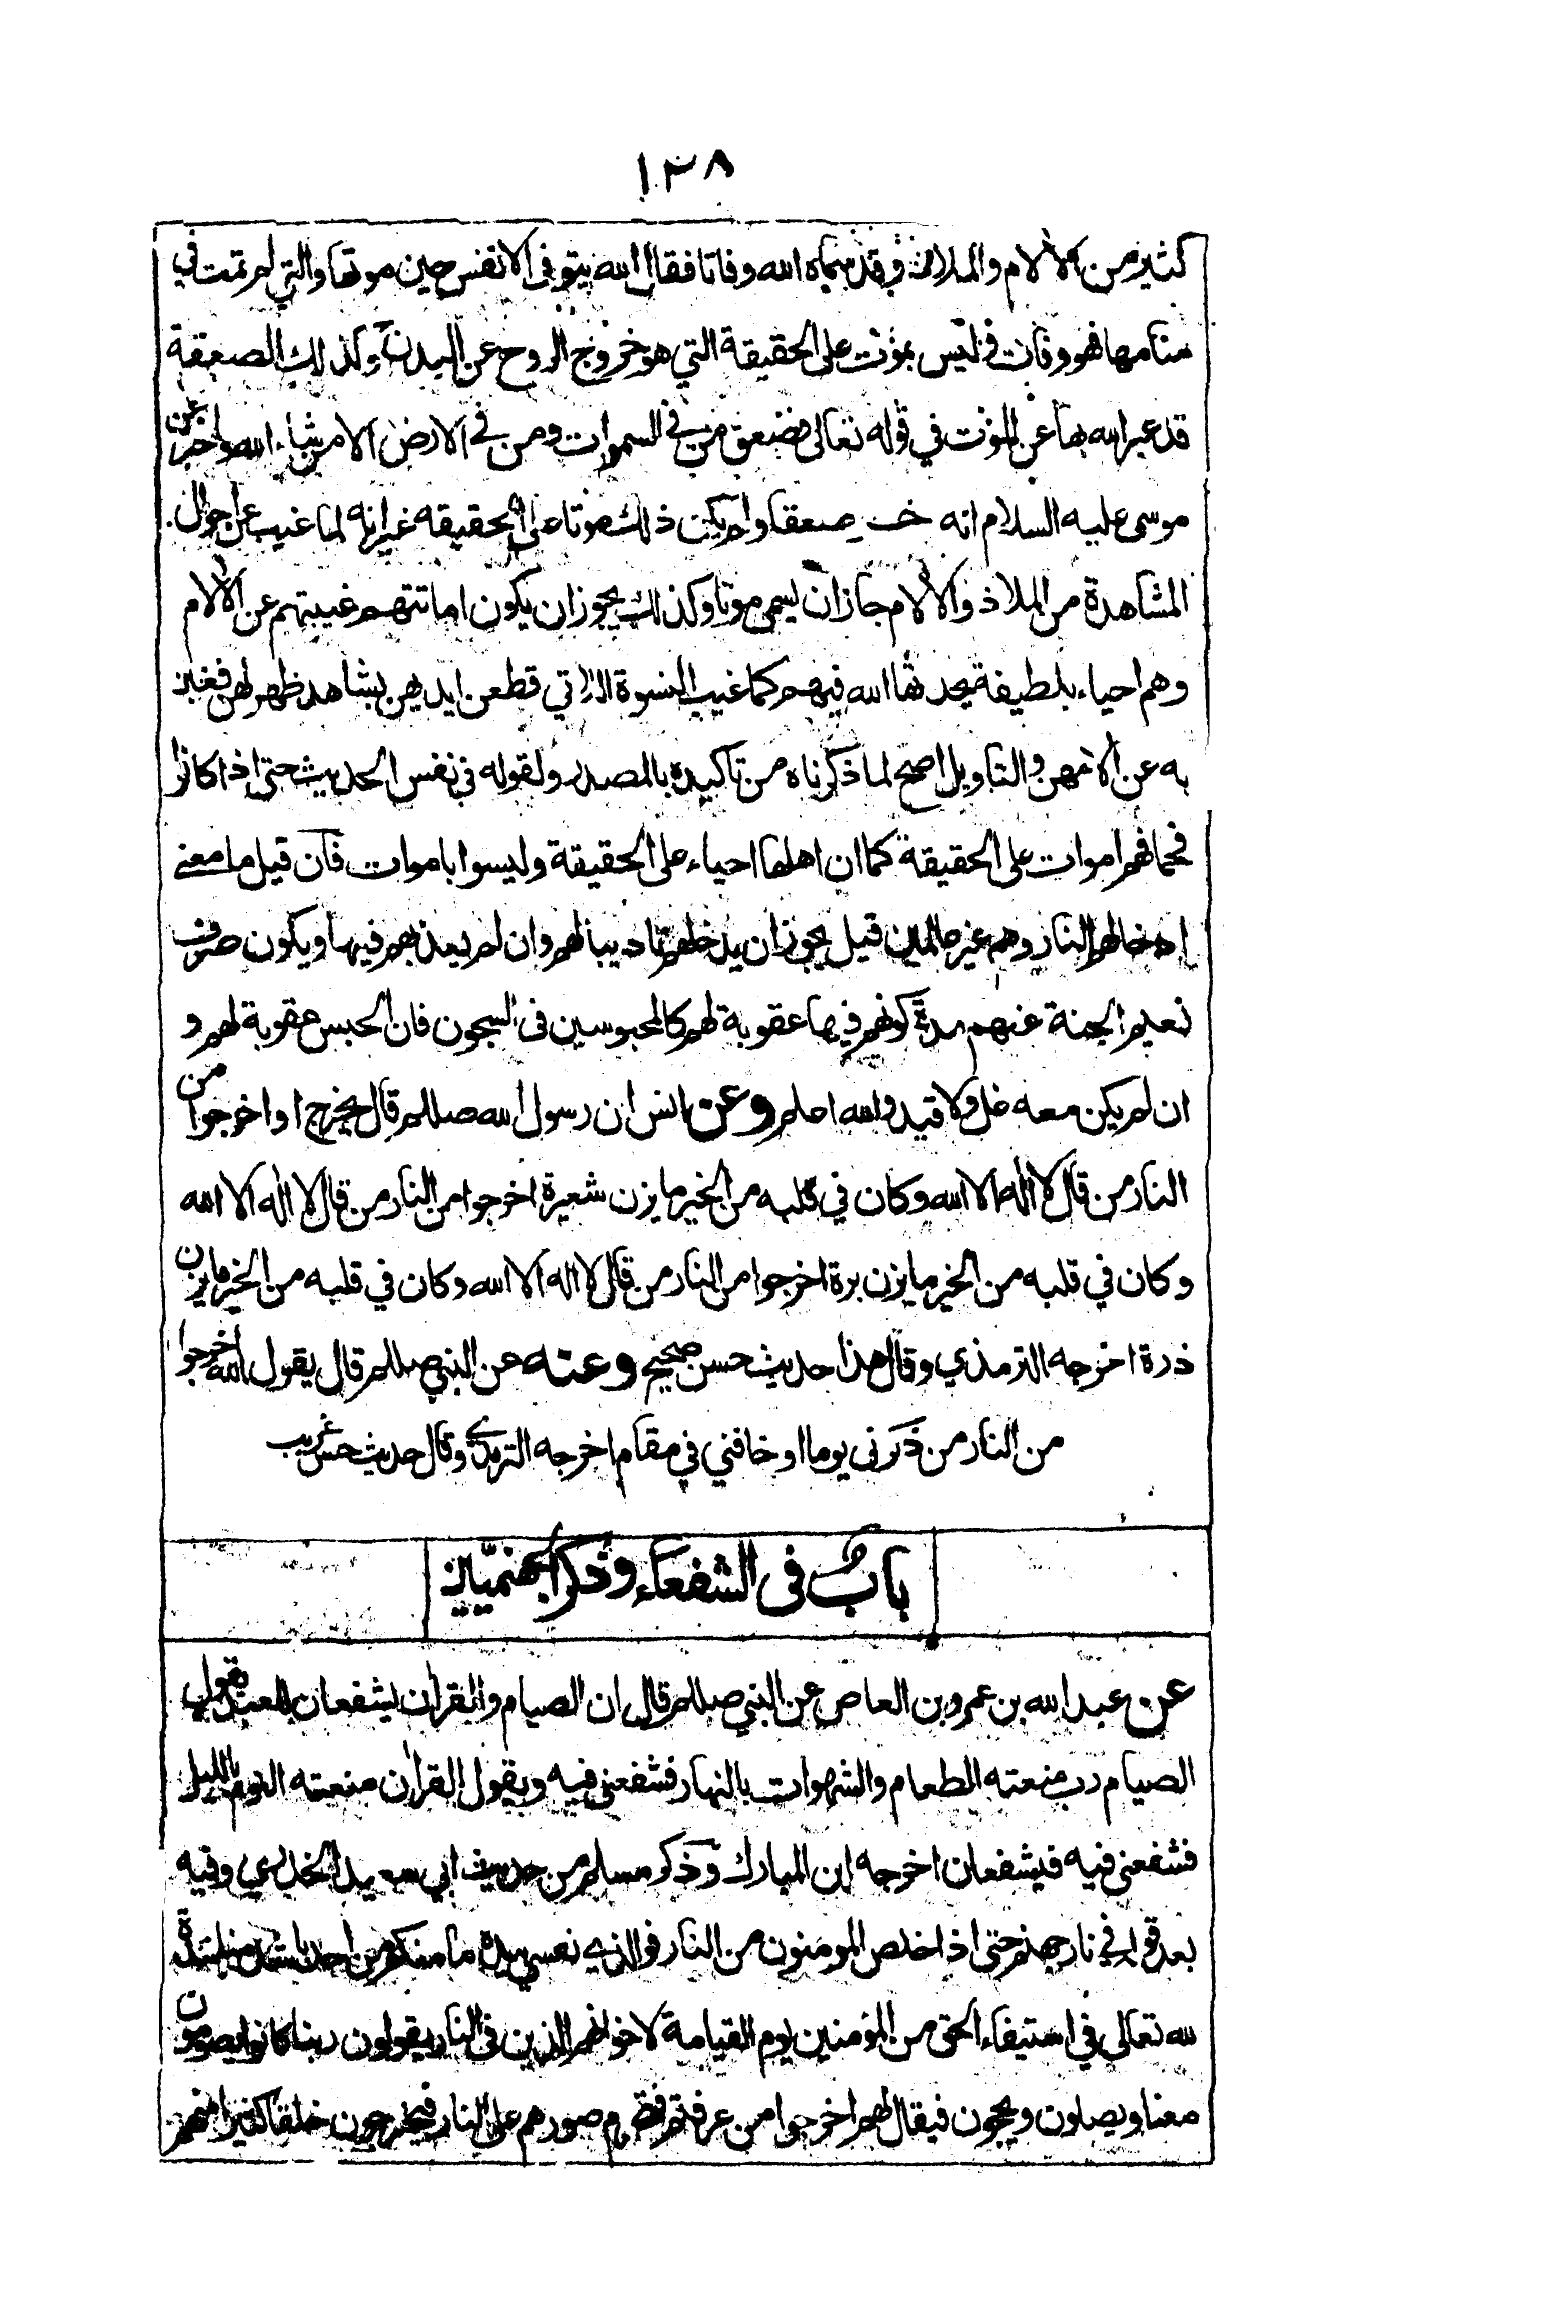 ١٣٨
كثير من الالام والملاذ وقد سماه الله وفاتا فقال الله يتوفى الانفس حين موتها والتي لم تمت في
منامها فهو وفات وليس بموت على الحقيقة التي هو خروج الروح عن البدن وكذلك الصعقة
قد عبر الله بها عن الموت في قوله تعالى فصعق من في السموات ومن في الارض الا من شاء الله واخبر عن
موسى عليه السلام انه خر صعقا ولم يكن ذلك موتا على الحقيقه غير انه لما غيب عن احوال
المشاهدة من الملاذ والالام جاز ان يسمى موتا وكذلك يجوز ان يكون اماتتهم غيبتهم عن الالام
وهم احياء بلطيفة يحدثها الله فيهم كما غيب النسوة اللاتي قطعن ايديهن بشاهد ظهر لهن فغبن
به عن الامهن والتاويل اصح لما ذكرناه من تاكيده بالمصدر ولقوله في نفس الحديث حتى اذا كانوا
فحما فهم اموات على الحقيقة كما ان اهلها احياء على الحقيقة وليسوا باموات فان قيل ما معنى
ادخالهم النار وهم غير عالمين قيل يجوز ان يدخلهم تاديبا لهم وان لم يعذبهم فيها ويكون صرف
نعيم الجنة عنهم مدة كونهم فيها عقوبة لهم كالمحبوسين في السجون فان الحبس عقوبة لهم و
ان لم يكن معه غل ولا قيد والله اعلم وعن انس ان رسول الله صللم قال يخرج او اخرجوا من
النار من قال لا اله الا الله وكان في قلبه من الخير ما يزن شعيرة اخرجوا من النار من قال لا اله الا الله
وكان في قلبه من الخير ما يزن برة اخرجوا من النار من قال لا اله الا الله وكان في قلبه من الخير ما يزن
ذرة اخرجه الترمذي وقال هذا حديث حسن صحيح وعنه عن النبي صللم قال يقول الله اخرجوا
من النار من ذكرنى يوما او خافني في مقام اخرجه الترمذي وقال حديث حسن غريب
باب فى الشفعاء وذكر الجهنميين
عن عبد الله بن عمرو بن العاص عن النبي صللم قال ان الصيام والقران يشفعان للعبد يقول
الصيام رب منعته الطعام والشهوات بالنهار فشفعنى فيه ويقول القران منعته النوم بالليل
فشفعنى فيه فيشفعان اخرجه ابن المبارك وذكر مسلم من حديث ابي سعيد الخدري وفيه
بعد قوله في نار جهنم حتى اذا خلص المومنون من النار فوالذي نفسي بيده ما منكم من احد باشد مناشدة
لله تعالى في استيفاء الحق من المؤمنين يوم القيامة لاخوانهم الذين فى النار يقولون ربنا كانوا يصومون
معنا ويصلون ويحجون فيقال لهم اخرجوا من عرفتم فتحرم صورهم على النار فيخرجون خلقا كثيرا منهم